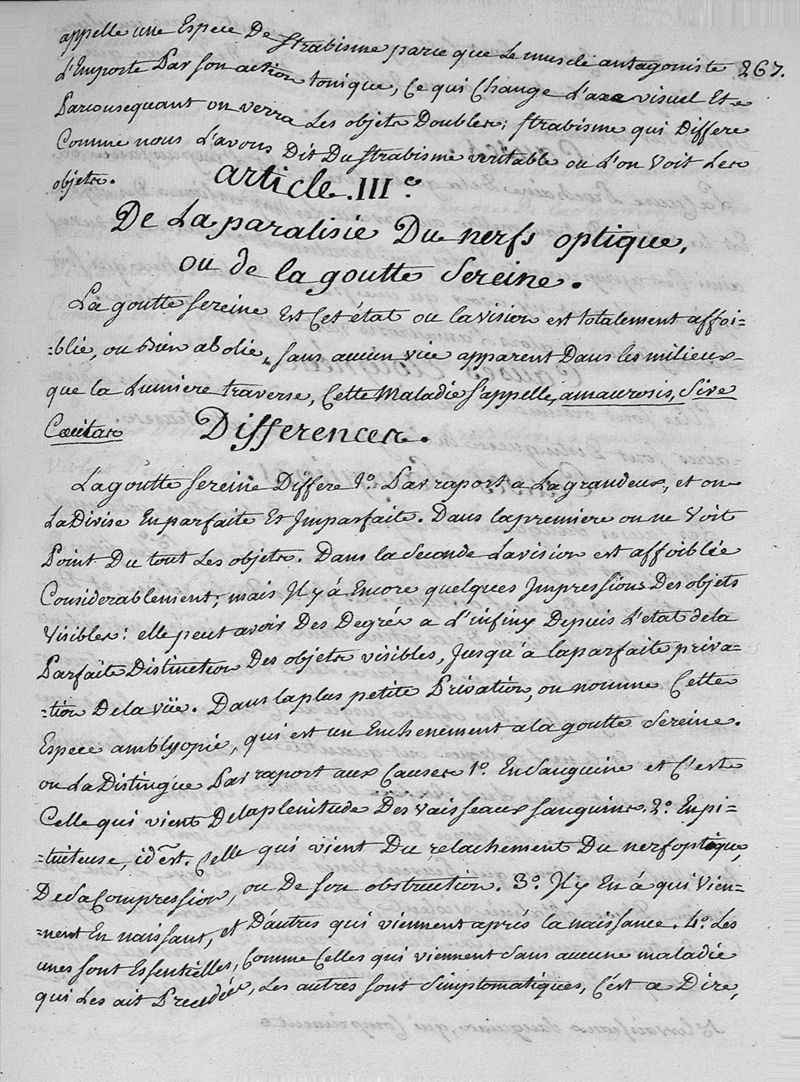 appelle une Espece De strabisme parce que Le muscle antagoniste 267.
L'Emporte Par son action tonique, Ce qui Change L'axe visuel Et
Parconsequant on verra Les objets Doubles; strabisme qui Differe
Comme nous L'avons Dit Du strabisme veritable ou L'on voit Les
objets.
article. III.e
De La paralisie Du nerfs optique,
ou de la goutte Sereine.
La goutte sereine Est Cet état ou la vision est totalement affoi=
=blie, ou Bien abolie, sans aucun vice apparent Dans les milieux
que la Lumiere traverse, Cette Maladie s'appelle, amaurosis, sive
Cœcitas
Differences.
La goutte sereine Differe 1.o Par raport a La grandeur, et on
La Divise En parfaite Et Imparfaite. Dans la premiere on ne Voit
Point Du tout Les objets. Dans la seconde La vision est affoiblée
Considerablement, mais Il y à Encore quelques Impressions Des objets
visibles: elle peut avoir Des Degrés a L'infiny Depuis L'etat de la
Parfaite Distinction Des objets visibles, jusqu'à la parfaite priva=
=tion De la vüe. Dans la plus petite Privation, on nomme Cette
Espece amblyopie, qui est un Enchenement a la goutte Sereine.
on La Distingue Par raport aux Causes 1.o En Sanguine et C'est
Celle qui vient De la plenitude Des vaisseaux sanguins. 2.o En pi=
=tuiteuse, id est. Celle qui vient Du relachement Du nerf optique,
De sa Compression, ou De son obstruction. 3.o Il y En à qui vien=
=nent En naissant, et D'autres qui viennent aprés la naissance. 4.o Les
unes sont Essentielles, Comme Celles qui viennent sans aucune maladie
qui Les ait Precedées, Les autres sont Simptomatiques, C'est a Dire,